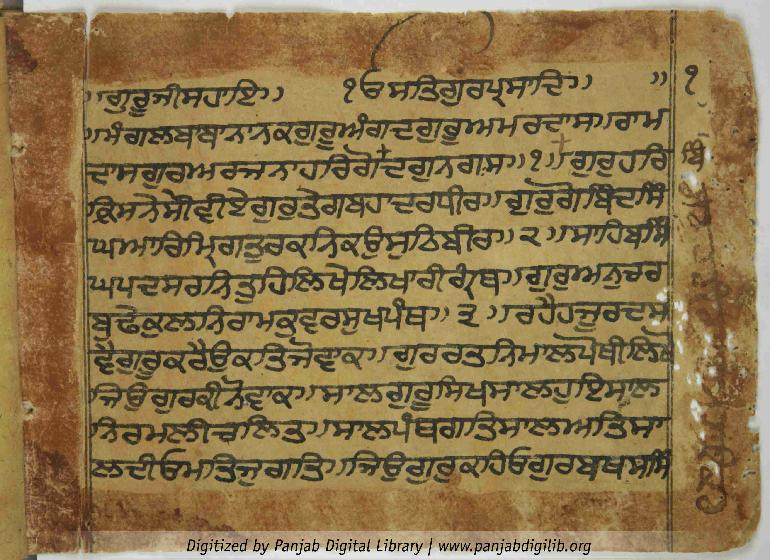 ਗੁਰੂਜੀਸਹਾਇ ੧ਓ ਸਤਿਗੁਰਪ੍ਰਸਾਦਿ ॥ ੧
॥ਮੰਗਲਬਾਬਾਨਾਨਕਗੁਰੂਅੰਗਦਗੁਰੂਅਮਰਦਾਸ॥ਰਾਮ
ਦਾਸਗੁਰਅਰਜਨਾਹਰਿਗੋਂਦਗੁਨਰਾਸ॥੧॥ਗੁਰੁਹਰਿ
ਕ੍ਰਿਸਨੇਸੇਵੀਏਗੁਰੁਤੇਗਬਹਾਦਰਧੀਰ॥ਗੁਰੁਗੋਬਿੰਦਸਿੰ
ਘਮਾਰਿਮ੍ਰਿਗਤੁਰਕਨਿਕਉਸੁਠਿਬੀਰ॥੨॥ਸਾਹਿਬਸਿੰ
ਘਪਦਸਰਨਿਤੁਹਿਲਿਖੇਲਿਖਾਰੀਗ੍ਰੰਥ॥ਗੁਰੁਅਨੁਚਰ
ਬੁਢੇਕੁਲਨਿਰਾਮਕੁਵਰਸੁਖਪੰਥ॥੩॥ਰਹੈਹਜੂਰਦਸ
ਵੈਗੁਰੂਕਰੈਉਕਤਿਜੋਵਾਕ॥ਗੁਰਚਰਤੁਨਿਮਾਲਪੋਥੀਲਿਖੇ
ਜਿਉਗੁਰਕੀਨੋਵਾਕ॥ਸਾਲਗੁਰੂਸਿਖਸਾਲਹੁਇਸਾਲ
ਨਿਰਮਲੀਚਲਿਤ॥ਸਾਲਪੰਥਗਤਿਸਾਲਮਤਿਸਾ
ਲਦੀਓਮਤਿਜੁਗਤਿ॥ਜਿਉਗੁਰੁਕਹਿਓਗੁਰਬਖਸਸਿੰ
Digitized by Panjab Digital Library | www.panjabdigilib.org